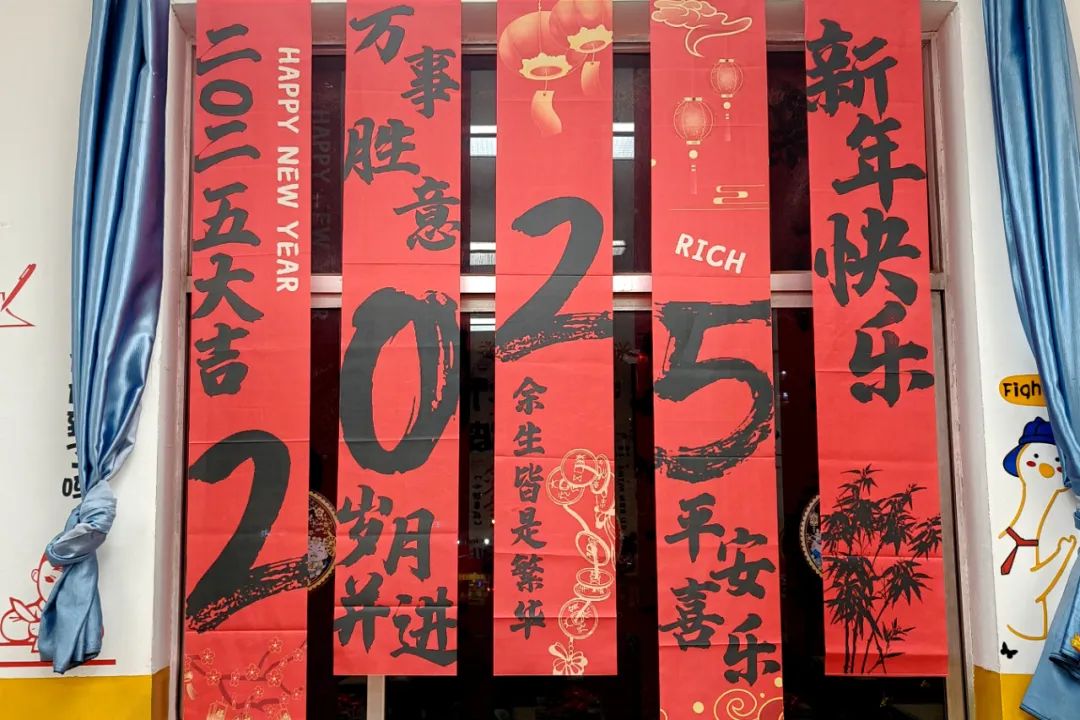 二〇二五大吉
HAPPY NEW YEAR
2
万事胜意
0
岁月并进
2
余生皆是繁华
RICH
5
平安喜乐
新年快乐
Figh